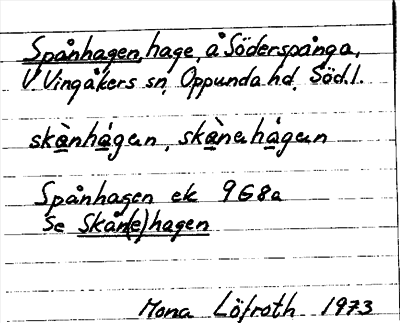 Spånhagen, hage, å Söderspånga,
V. Vingåkers sn, Oppunda hd, Söd.l.
skànhágen, skànehágen
Spånhagen ek 9G8a
Se Skån(e)hagen
Mona Löfroth 1973